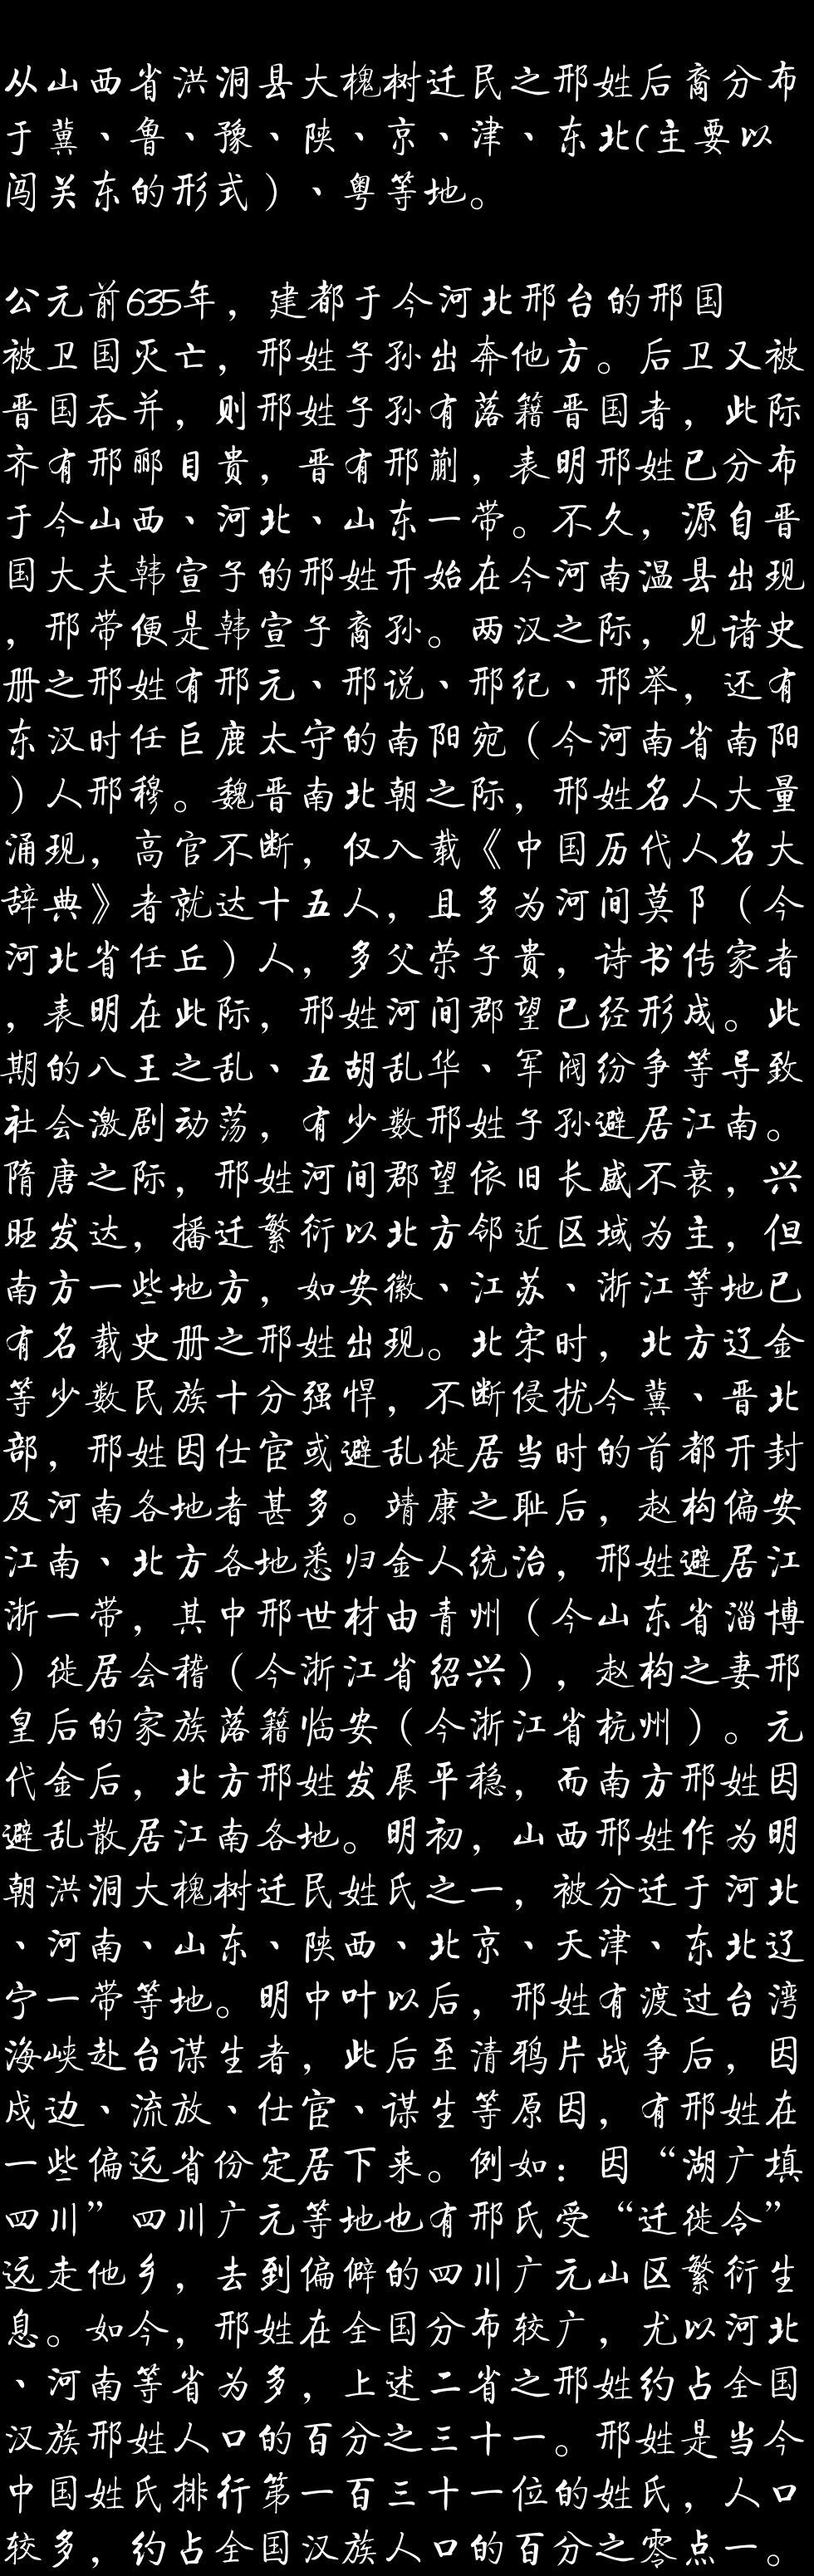 从山西省洪洞县大槐树迁民之邢姓后裔分布
于冀、鲁、豫、陕、京、津、东北(主要以
闯关东的形式）、粤等地。
公元前635年，建都于今河北邢台的邢国
被卫国灭亡，邢姓子孙出奔他方。后卫又被
晋国吞并，则邢姓子孙有落籍晋国者，此际
齐有邢郦目贵，晋有邢蒯，表明邢姓已分布
于今山西、河北、山东一带。不久，源自晋
国大夫韩宣子的邢姓开始在今河南温县出现
，邢带便是韩宣子裔孙。两汉之际，见诸史
册之邢姓有邢元、邢说、邢纪、邢举，还有
东汉时任巨鹿太守的南阳宛（今河南省南阳
）人邢穆。魏晋南北朝之际，邢姓名人大量
涌现，高官不断，仅入载《中国历代人名大
辞典》者就达十五人，且多为河间莫阝（今
河北省任丘）人，多父荣子贵，诗书传家者
，表明在此际，邢姓河间郡望已经形成。此
期的八王之乱、五胡乱华、军阀纷争等导致
社会激剧动荡，有少数邢姓子孙避居江南。
隋唐之际，邢姓河间郡望依旧长盛不衰，兴
旺发达，播迁繁衍以北方邻近区域为主，但
南方一些地方，如安徽、江苏、浙江等地已
有名载史册之邢姓出现。北宋时，北方辽金
等少数民族十分强悍，不断侵扰今冀、晋北
部，邢姓因仕宦或避乱徙居当时的首都开封
及河南各地者甚多。靖康之耻后，赵构偏安
江南、北方各地悉归金人统治，邢姓避居江
浙一带，其中邢世材由青州（今山东省淄博
）徙居会稽（今浙江省绍兴），赵构之妻邢
皇后的家族落籍临安（今浙江省杭州）。元
代金后，北方邢姓发展平稳，而南方邢姓因
避乱散居江南各地。明初，山西邢姓作为明
朝洪洞大槐树迁民姓氏之一，被分迁于河北
、河南、山东、陕西、北京、天津、东北辽
宁一带等地。明中叶以后，邢姓有渡过台湾
海峡赴台谋生者，此后至清鸦片战争后，因
戍边、流放、仕宦、谋生等原因，有邢姓在
一些偏远省份定居下来。例如：因“湖广填
四川”四川广元等地也有邢氏受“迁徙令”
远走他乡，去到偏僻的四川广元山区繁衍生
息。如今，邢姓在全国分布较广，尤以河北
、河南等省为多，上述二省之邢姓约占全国
汉族邢姓人口的百分之三十一。邢姓是当今
中国姓氏排行第一百三十一位的姓氏，人口
较多，约占全国汉族人口的百分之零点一。